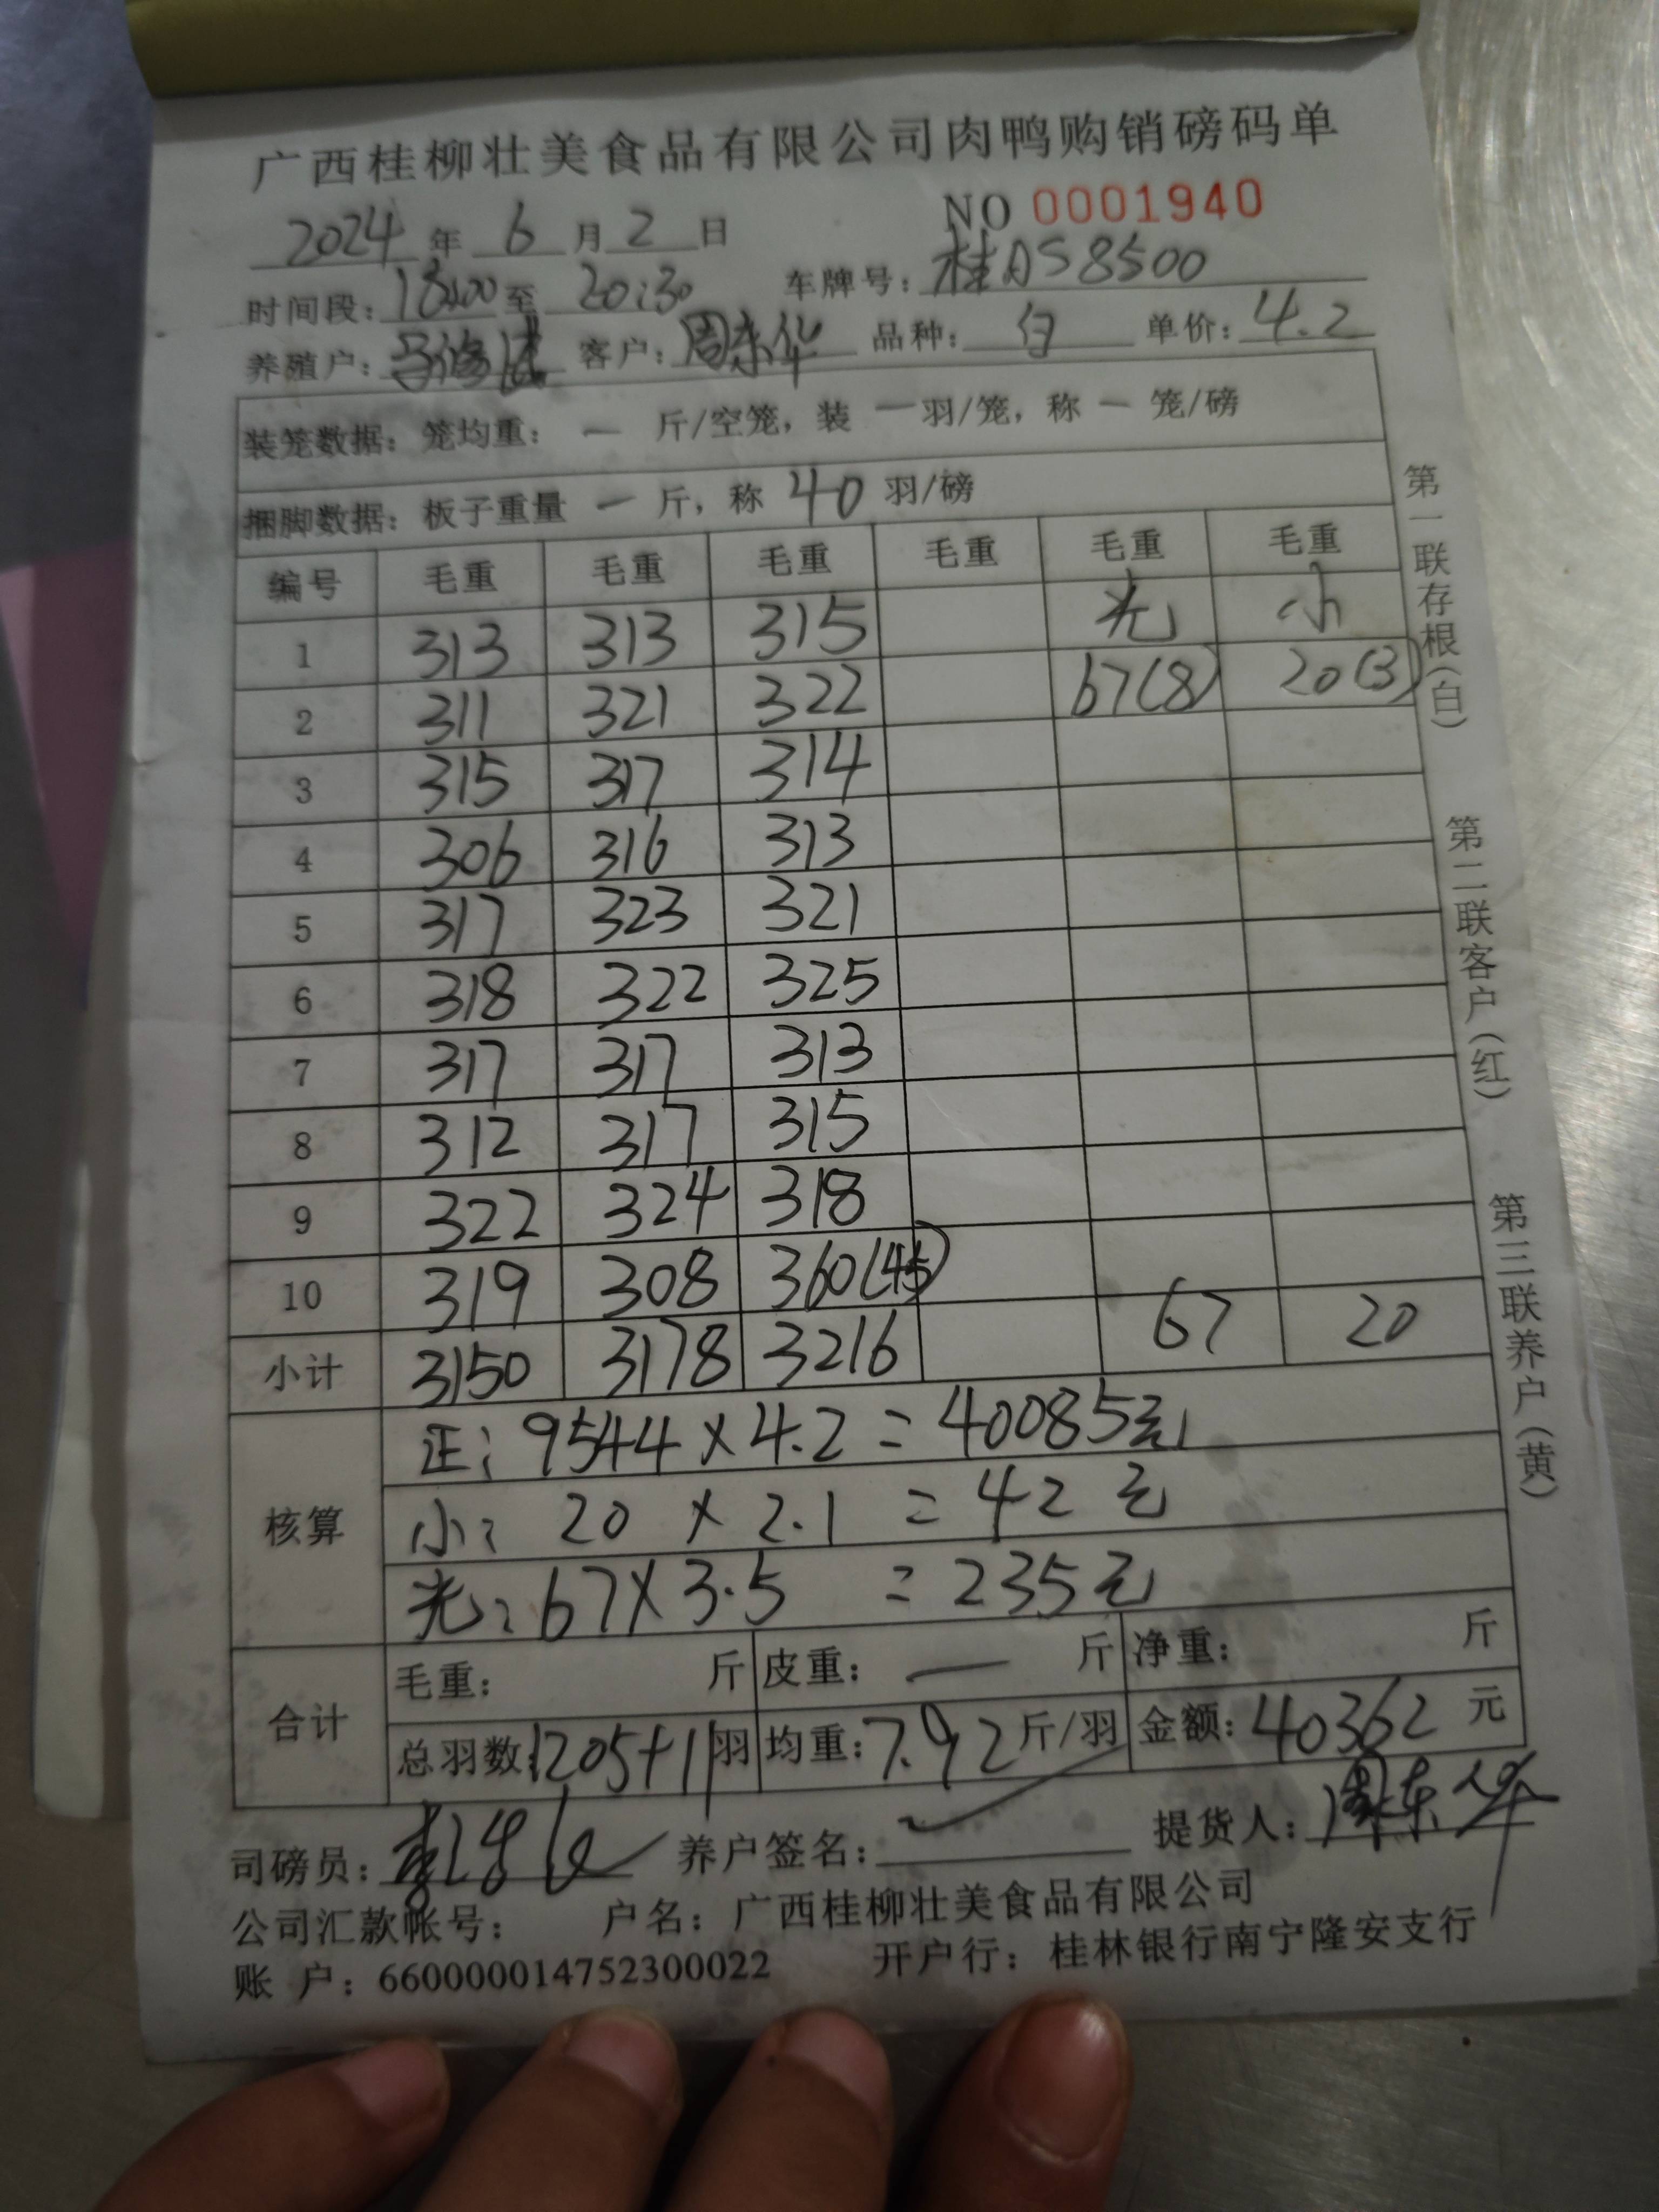 广西桂柳壮美食品有限公司肉鸭购销磅码单
NO 0001940
2024 年 6 月 2 日
时间段: 18:00 至 20:30 车牌号: 桂AS8500
养殖户: 客户: 周东华 品种: 白 单价: 4.2
装笼数据: 笼均重: 一 斤/空笼, 装 一 羽/笼, 称 一 笼/磅
捆脚数据: 板子重量 一 斤, 称 40 羽/磅
编号 毛重 毛重 毛重 毛重 毛重 毛重
1 313 313 315 光 小
2 311 321 322 67(8) 20(3)
3 315 317 314
4 306 316 313
5 317 323 321
6 318 322 325
7 317 317 313
8 312 317 315
9 322 324 318
10 319 308 360(45)
小计 3150 3178 3216 67 20
核算
正: 9544×4.2=40085元
小: 20×2.1=42元
光: 67×3.5=235元
合计
毛重: 斤 皮重: 一 斤 净重: 斤
总羽数: 1205+11 羽 均重: 7.92 斤/羽 金额: 40362 元
司磅员: 养户签名: 提货人: 周东华
公司汇款帐号: 户名: 广西桂柳壮美食品有限公司
账 户: 660000014752300022 开户行: 桂林银行南宁隆安支行
第一联存根(白)
第二联客户(红)
第三联养户(黄)